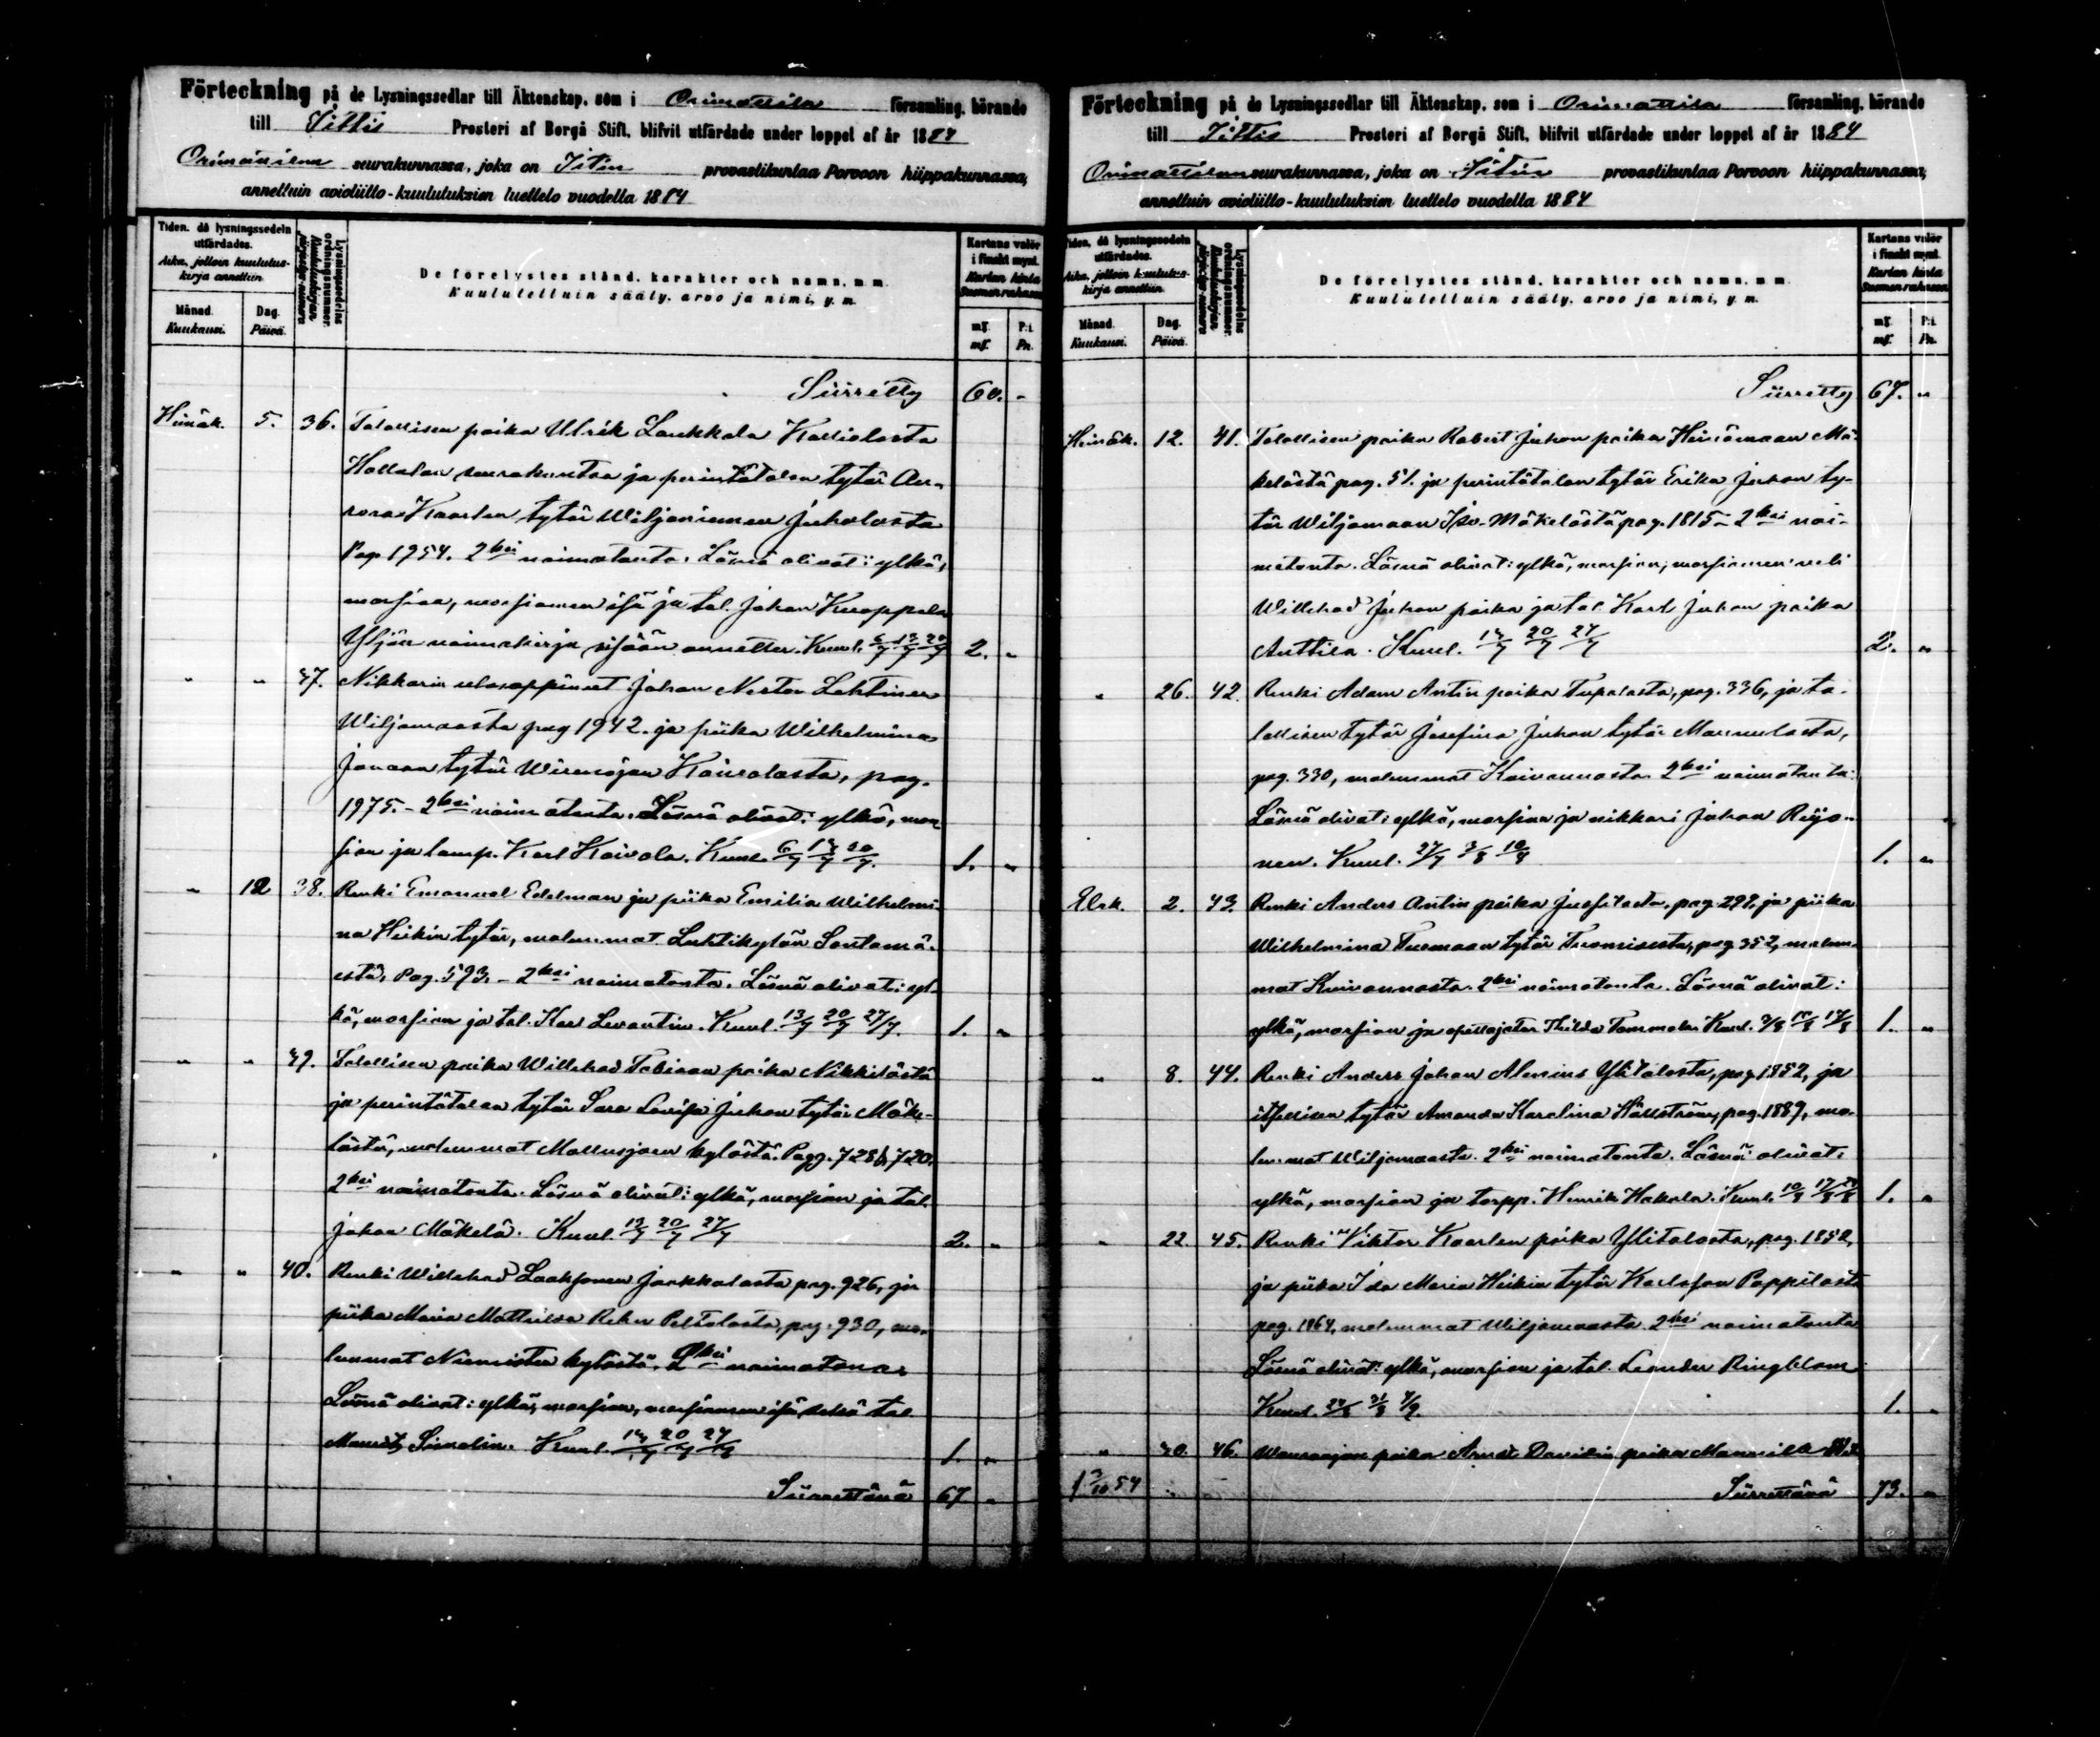 Förteckning på de Lysningssedlar till Äktenskap, som i Orimattila församling, hörande
till Jittis Prosteri af Borgå Stift, blifvit utfärdade under loppet af år 1884
Orimattilan seurakunnassa, joka on Iitin provastikuntaa Porvoon hiippakunnassa,
annettuin avioliitto-kuulutuksien luettelo vuodella 1884
Tiden, då lysningssedeln utfärdades.
Aika, jolloin kuulutus-kirja annettiin.
Månad. Kuukausi.
Dag. Päivä.
Lysningssedelns ordningsnummer.
Kuulutuskirjan järjestys-numero
De förelystes stånd, karakter och namn, m. m.
Kuulutettuin sääty, arvo ja nimi, y. m.
Kartans valör i finskt mynt.
Kartan hinta Suomen rahassa
mf. mf.
P:i. Pn.
Siirretty 60. -
Heinäk. 5. 36. Talollisen poika Ulrik Laukkala Kalliolasta
Hollolan seurakuntaa ja perintötalon tytär Au-
rora Kaarlen tytär Wiljaniemen Juholasta
Pag. 1954. 2ksi naimatonta. Läsnä olivat: ylkä,
morsian, morsiamen isä ja tal. Johan Knoppala
Yljän naimakirja sisään annettu. Kuul. 6/7 13/7 20/7 2. "
" " 37. Nikkarin Johan Nestor Lehtinen
Wiljamaasta pag 1942. ja piika Wilhelmina
Joonaan tytär Wirenojan Koivolasta, pag.
1975. - 2ksi naimatonta. Läsnä olivat: ylkä, mor
sian ja lamp. Karl Koivola. Kuul. 6/7 13/7 20/7. 1. "
" 12 38. Renki Emanuel Edelman ja piika Emilia Wilhelmi-
na Heikin tytär, molemmat Luhtikylän Santamä-
estä, Pag. 593. - 2ksi naimatonta. Läsnä olivat: yl-
kä, morsian ja tal. Levantin. Kuul. 13/7 20/7 27/7. 1. "
" " 39. Talollisen poika Willehad Tobiaan poika Nikkilästä
ja perintötalon tytär Sara Lovisa Juhon tytär Mäke-
lästä, molemmat Mallusjoen kylästä. Pagg. 728 & 720.
2ksi naimatonta. Läsnä olivat: ylkä, morsian ja tal.
Johan Mäkelä. Kuul. 13/7 20/7 27/7 2. "
" " 40. Renki Willehad Laaksonen Jaakkolasta pag. 926, ja
piika Maria Mathilda Peltolasta, pag. 930, mo-
lemmat Niemistön kylästä. 2ksi naimatona.
Läsnä olivat: ylkä, morsian, morsiamen isä sekä tal.
Mauritz Simolin. Kuul. 13/7 20/7 27/7 1. "
Siirrettävä 67 "
Förteckning på de Lysningssedlar till Äktenskap, som i Orimattila församling, hörande
till Jittis Prosteri af Borgå Stift, blifvit utfärdade under loppet af år 1884
Orimattilan seurakunnassa, joka on Iitin provastikuntaa Porvoon hiippakunnassa,
annettuin avioliitto-kuulutuksien luettelo vuodella 1884
Tiden, då lysningssedeln utfärdades.
Aika, jolloin kuulutus-kirja annettiin.
Månad. Kuukausi.
Dag. Päivä.
Lysningssedelns ordningsnummer.
Kuulutuskirjan järjestys-numero
De förelystes stånd, karakter och namn, m. m.
Kuulutettuin sääty, arvo ja nimi, y. m.
Kartans valör i finskt mynt.
Kartan hinta Suomen rahassa
mf. mf.
P:i. Pn.
Siirretty 67. "
Heinäk. 12. 41. Talollisen poika Robert Juhon poika Heinämaan Mä-
kelästä pag. 51. ja perintötalon tytär Erika Juhon ty-
tär Wiljamaan Iso-Mäkelästä pag. 1815 - 2ksi nai-
matonta. Läsnä olivat: ylkä, morsian, morsiamen veli
Willehad Juhon poika ja tal. Karl Juhon poika
Anttila. Kuul. 13/7 20/7 27/7 2. "
" 26. 42. Renki Adam Antin poika Tupalasta, pag. 336, ja ta-
lollisen tytär Josefina Juhon tytär Mannulasta,
pag. 330, molemmat Koivannasta. 2ksi naimatonta.
Läsnä olivat: ylkä, morsian ja nikkari Johan Reijo-
nen. Kuul. 27/7 3/8 10/8 1. "
Elok. 2. 43. Renki Anders Antin poika Jussilasta, pag. 297, ja piika
Wilhelmina Tuomaan tytär Tuomisesta, pag. 352, molem-
mat Kuivannasta. 2ksi naimatonta. Läsnä olivat:
ylkä, morsian ja Thilda Tommola. Kuul. 3/8 10/8 17/8 1. "
" 8. 44. Renki Anders Johan Alenius Ylitalosta, pag. 1852, ja
itsellisen tytär Amanda Karolina Hällström, pag. 1889, mo-
lemmat Wiljamaasta. 2ksi naimatonta. Läsnä olivat:
ylkä, morsian ja torpp. Henrik Hakala. Kuul. 10/8 17/8 24/8 1. "
" 22. 45. Renki Viktor Kaarlen poika Ylitalosta, pag. 1852,
ja piika Ida Maria Heikin tytär Karlsson Pappilasta
pag. 1864, molemmat Wiljamaasta. 2ksi naimatonta
Läsnä olivat: ylkä, morsian ja tal. Leander Ringblom.
Kuul. 24/8 31/8 7/9. 1. "
" 30. 46. poika Davidin poika
Siirrettävä 73. "